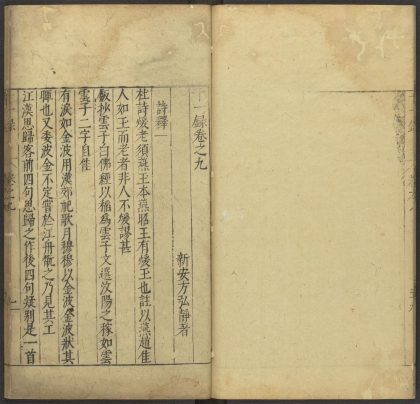 千一録卷之九
新安方弘靜著
詩釋一
杜詩煖老須燕玉本燕昭王有煖玉也註以燕趙佳
人如玉而老者非人不煖謬甚
飯抄雲子白佛經以稻為雲子文選汶陽之稼如雲
雲子二字自佳
有淚如金波用漢郊祀歌月穆穆以金波金波狀其
輝也又委波金不定嘗於江舟觀之乃見其工
江漢思歸客前四句思歸之作後四句疑別是一首
卷之九
一